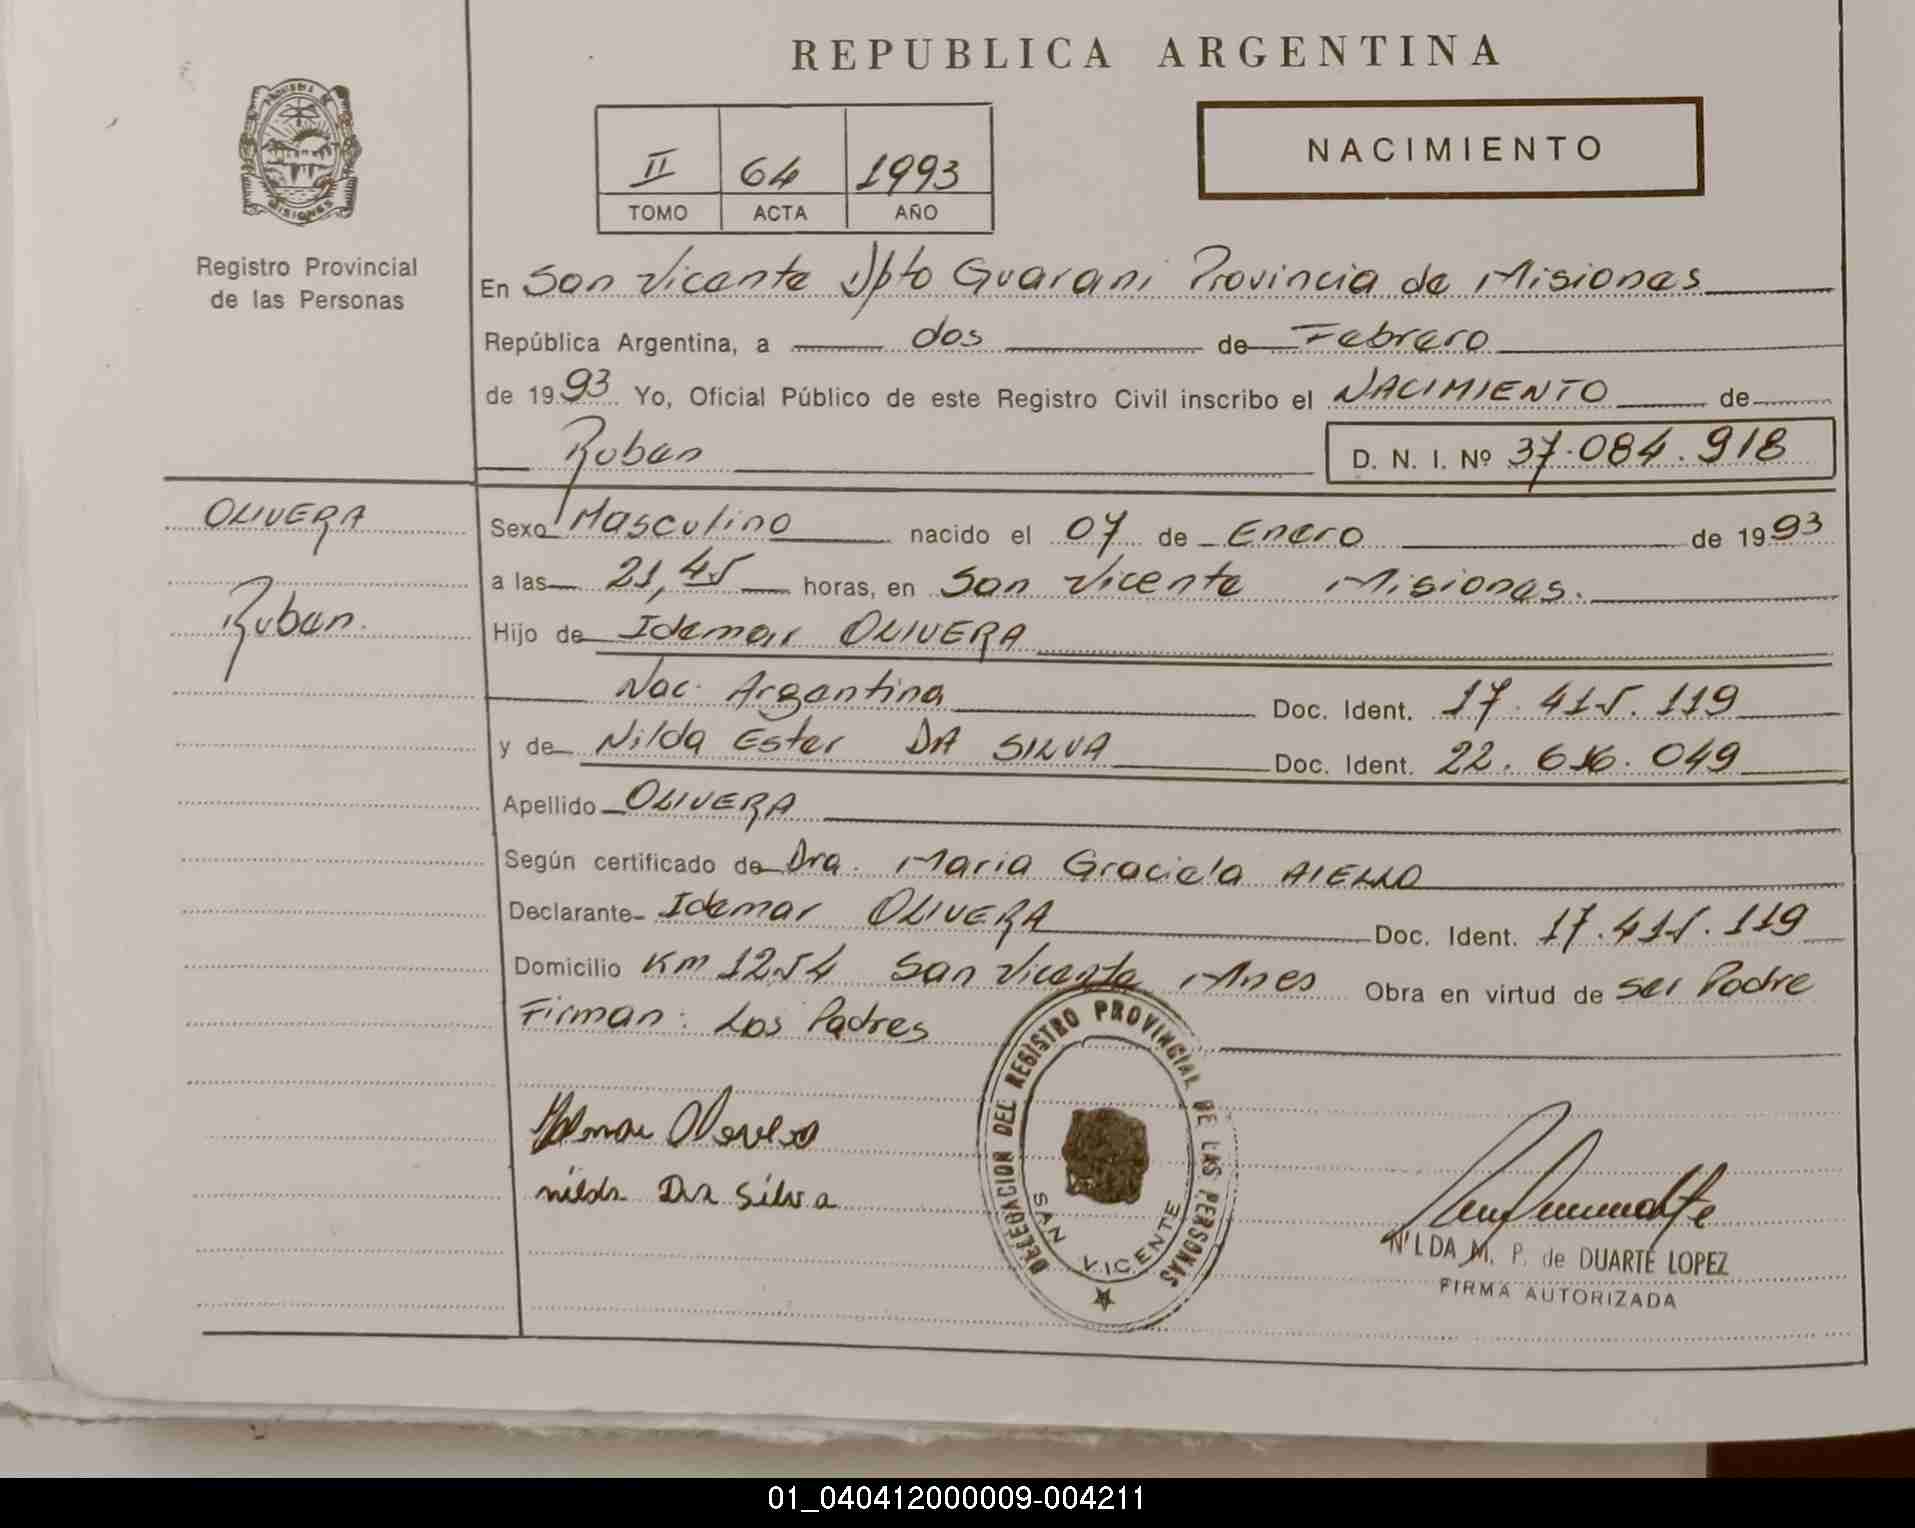 REPUBLICA ARGENTINA
II 64 1993
TOMO ACTA AÑO
NACIMIENTO
MISIONES
Registro Provincial
de las Personas
En San Vicente Dpto Guarani Provincia de Misiones
República Argentina, a dos de Febrero
de 1993 Yo, Oficial Público de este Registro Civil inscribo el NACIMIENTO de
Ruben D. N. I. Nº 37.084.918
OLIVERA
Ruben.
Sexo Masculino nacido el 07 de Enero de 1993
a las 21,45 horas, en San Vicente Misiones.
Hijo de Idemar OLIVERA
Nac. Argentina Doc. Ident. 17.415.119
y de Nilda Ester DA SILVA Doc. Ident. 22. 049
Apellido OLIVERA
Según certificado de Dra. Maria Graciela AIELLO
Declarante Idemar OLIVERA Doc. Ident. 17.415.119
Domicilio KM 1254 San Vicente Mnes Obra en virtud de ser Padre
Firman: Los Padres
DELEGACION DEL REGISTRO PROVINCIAL DE LAS PERSONAS
SAN VICENTE
nilda Da Silva
NILDA M. P. de DUARTE LOPEZ
FIRMA AUTORIZADA
01_040412000009-004211